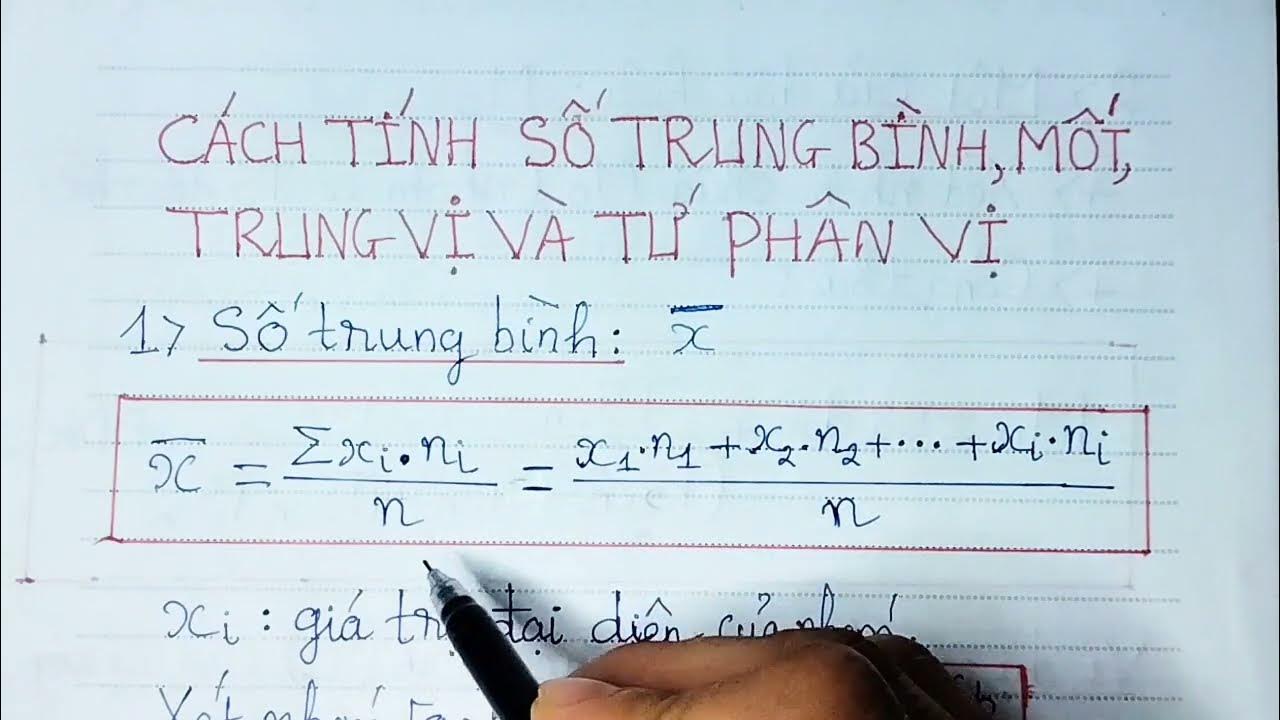 CÁCH TÍNH SỐ TRUNG BÌNH, MỐT,
TRUNG VỊ VÀ TỨ PHÂN VỊ
1> Số trung bình: x̅
x̅ = Σxᵢ.nᵢ / n = x₁.n₁ + x₂.n₂ + ... + xᵢ.nᵢ / n
xᵢ : giá trị đại diện của nhóm
Xét nhóm